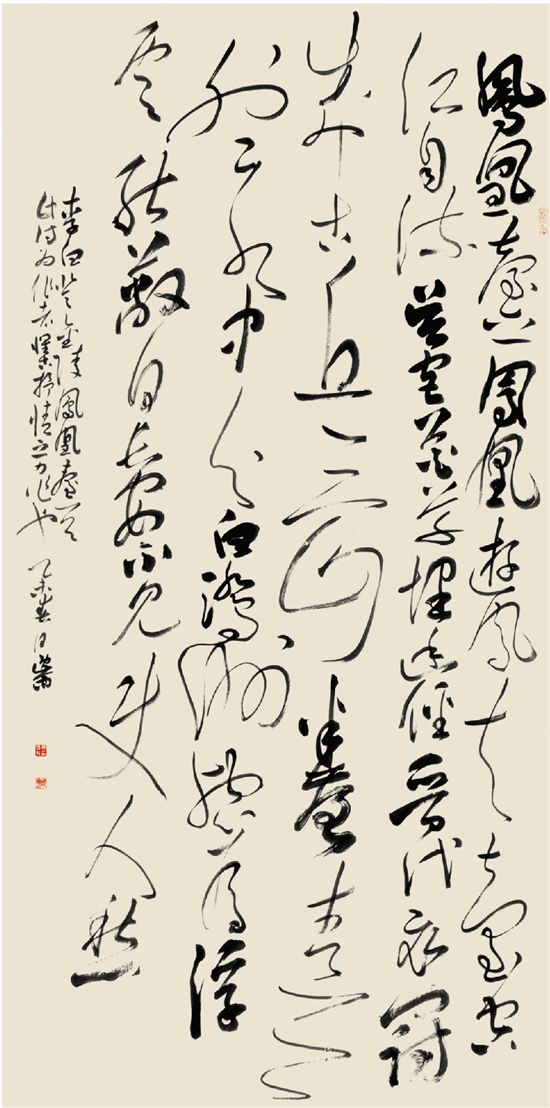 鳳凰臺上鳳凰遊鳳去臺空
江自流吳宮花草埋幽徑晉代衣冠
成古丘三山半落青天
外二水中分白鷺洲總為浮
雲能蔽日長安不見使人愁
李白登金陵鳳凰臺
此詩為作者懷抒情之力作也 乙未春日